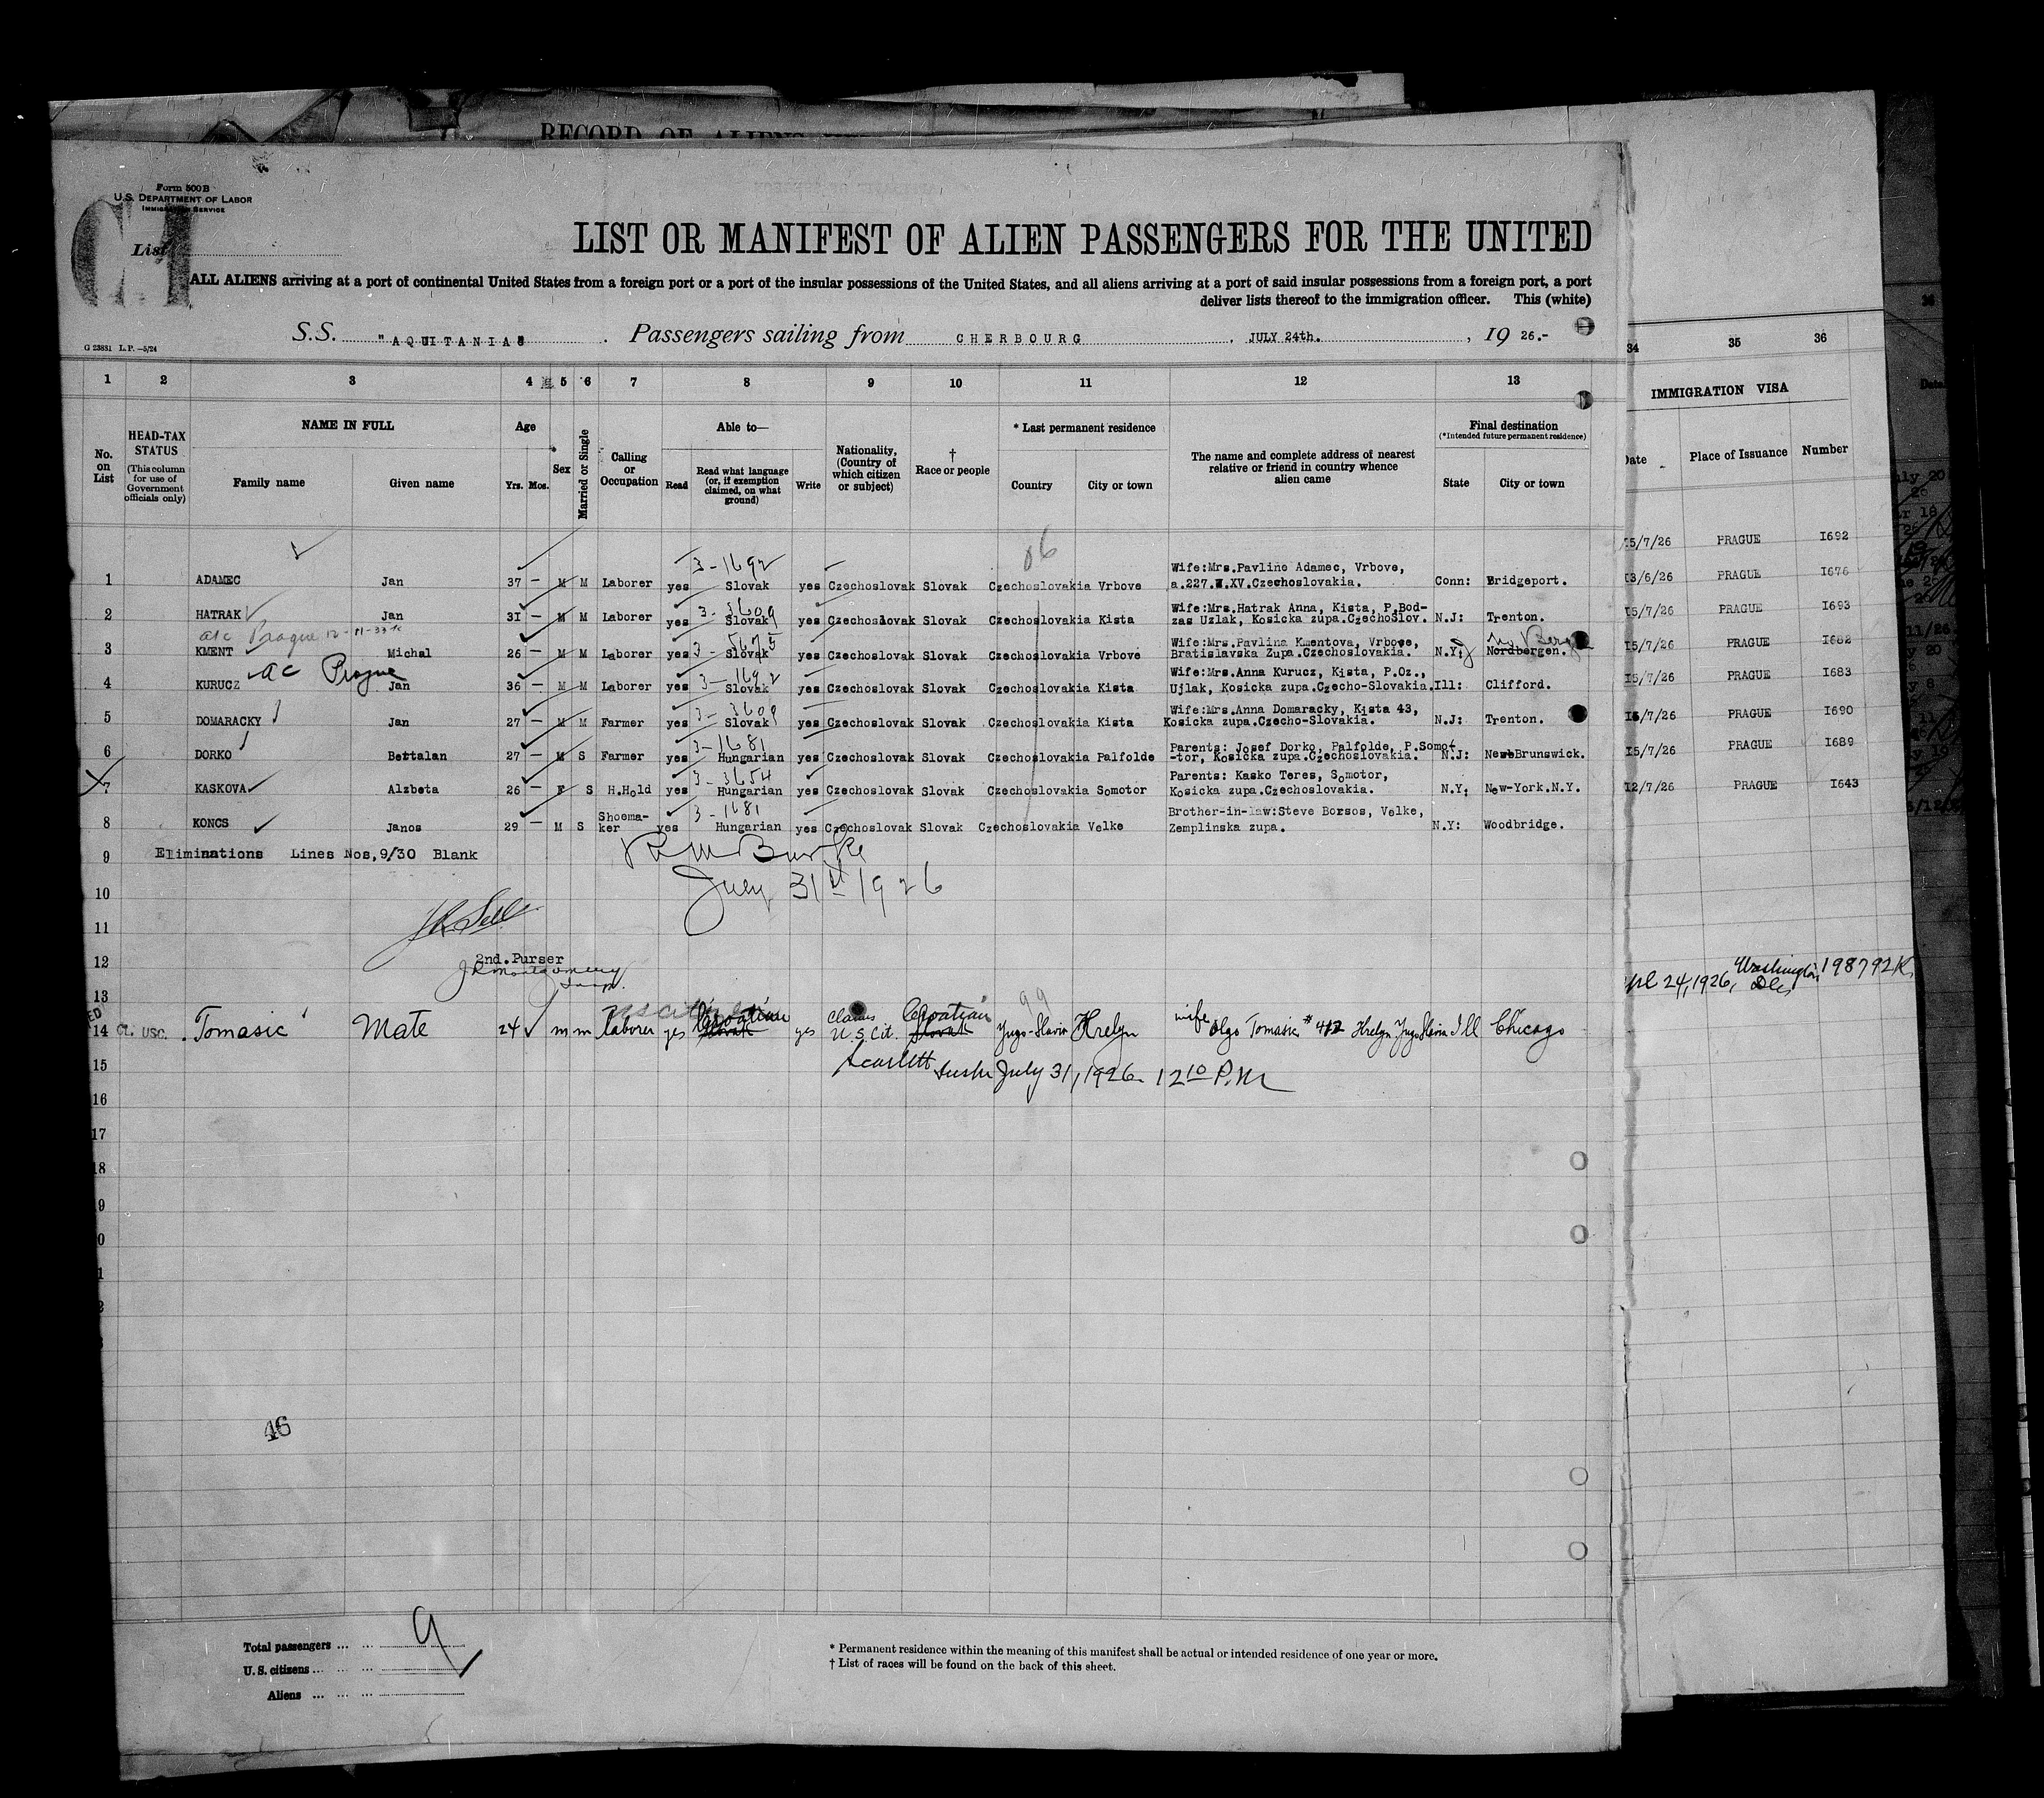 RECORD OF ALIENS
Form 500 B
U.S. DEPARTMENT OF LABOR
IMMIGRATION SERVICE
List
LIST OR MANIFEST OF ALIEN PASSENGERS FOR THE UNITED
ALL ALIENS arriving at a port of continental United States from a foreign port or a port of the insular possessions of the United States, and all aliens arriving at a port of said insular possessions from a foreign port, a port
deliver lists thereof to the immigration officer. This (white)
S.S. "AQUITANIA" . Passengers sailing from CHERBOURG , JULY 24th. , 19 26.-
G 23831 L.P.—5/24
1 2 3 4 5 6 7 8 9 10 11 12 13 34 35 36
No. on List
HEAD-TAX STATUS
(This column for use of Government officials only)
NAME IN FULL
Family name Given name
Age
Yrs. Mos.
Sex
Married or Single
Calling or Occupation
Able to—
Read
Read what language (or, if exemption claimed, on what ground)
Write
Nationality, (Country of which citizen or subject)
† Race or people
* Last permanent residence
Country City or town
The name and complete address of nearest relative or friend in country whence alien came
Final destination
(*Intended future permanent residence)
State City or town
IMMIGRATION VISA
Date Place of Issuance Number
15/7/26 PRAGUE 1692
06
3-1692
1 ADAMEC Jan 37 — M M Laborer yes Slovak yes Czechoslovak Slovak Czechoslovakia Vrbove Wife:Mrs.Pavline Adamec, Vrbove, a.227.W.XV.Czechoslovakia. Conn: Bridgeport. 13/6/26 PRAGUE 1676
3-3609
2 HATRAK Jan 31 — M M Laborer yes Slovak yes Czechoslovak Slovak Czechoslovakia Kista Wife:Mrs.Hatrak Anna, Kista, P.Bod-zas Uzlak, Kosicka zupa.CzechoSlov. N.J: Trenton. 15/7/26 PRAGUE 1693
a/c Prague 12-11-33
3-5675
3 KMENT Michal 26 — M M Laborer yes Slovak yes Czechoslovak Slovak Czechoslovakia Vrbove Wife:Mrs.Pavlina Kmentova, Vrbove, Bratislavska Zupa.Czechoslovakia. N.Y: Nordbergen. 15/7/26 PRAGUE 1682
ac Prague
3-1692
4 KURUCZ Jan 36 — M M Laborer yes Slovak yes Czechoslovak Slovak Czechoslovakia Kista Wife:Mrs.Anna Kurucz, Kista, P.Oz., Ujlak, Kosicka zupa.Czecho-Slovakia. Ill: Clifford. 15/7/26 PRAGUE 1683
3-3609
5 DOMARACKY Jan 27 — M M Farmer yes Slovak yes Czechoslovak Slovak Czechoslovakia Kista Wife:Mrs.Anna Domaracky, Kista 43, Kosicka zupa.Czecho-Slovakia. N.J: Trenton. 15/7/26 PRAGUE 1690
3-1681
6 DORKO Bettalan 27 — M S Farmer yes Hungarian yes Czechoslovak Slovak Czechoslovakia Palfolde Parents: Josef Dorko, Palfolde, P.Somot-tor, Kosicka zupa.Czechoslovakia. N.J: NewBrunswick. 15/7/26 PRAGUE 1689
3-3654
7 KASKOVA Alzbeta 26 — F S H.Hold yes Hungarian yes Czechoslovak Slovak Czechoslovakia Somotor Parents: Kasko Teres, Somotor, Kosicka zupa.Czechoslovakia. N.Y: New-York.N.Y. 12/7/26 PRAGUE 1643
3-1681
8 KONCS Janos 29 — M S Shoema-ker yes Hungarian yes Czechoslovak Slovak Czechoslovakia Velke Brother-in-law:Steve Borsos, Velke, Zemplinska zupa. N.Y: Woodbridge.
9 Eliminations Lines Nos,9/30 Blank
July 31st 1926
10
11
12 2nd.Purser
JRMontgomery
Insp.
13
99
14 CL. USC. Tomasic Mate 24 m m laborer yes Croatian yes claims U.S.Cit. Croatian Jugo-Slavia Hrelyn wife Olga Tomasic #412 Hrelyn JugoSlavia Ill Chicago
24, 1926, Washington 198792
15 Scarlett July 31, 1926 12 10 P.M
16
17
18
19
46
Total passengers 9
U.S. citizens
Aliens
* Permanent residence within the meaning of this manifest shall be actual or intended residence of one year or more.
† List of races will be found on the back of this sheet.